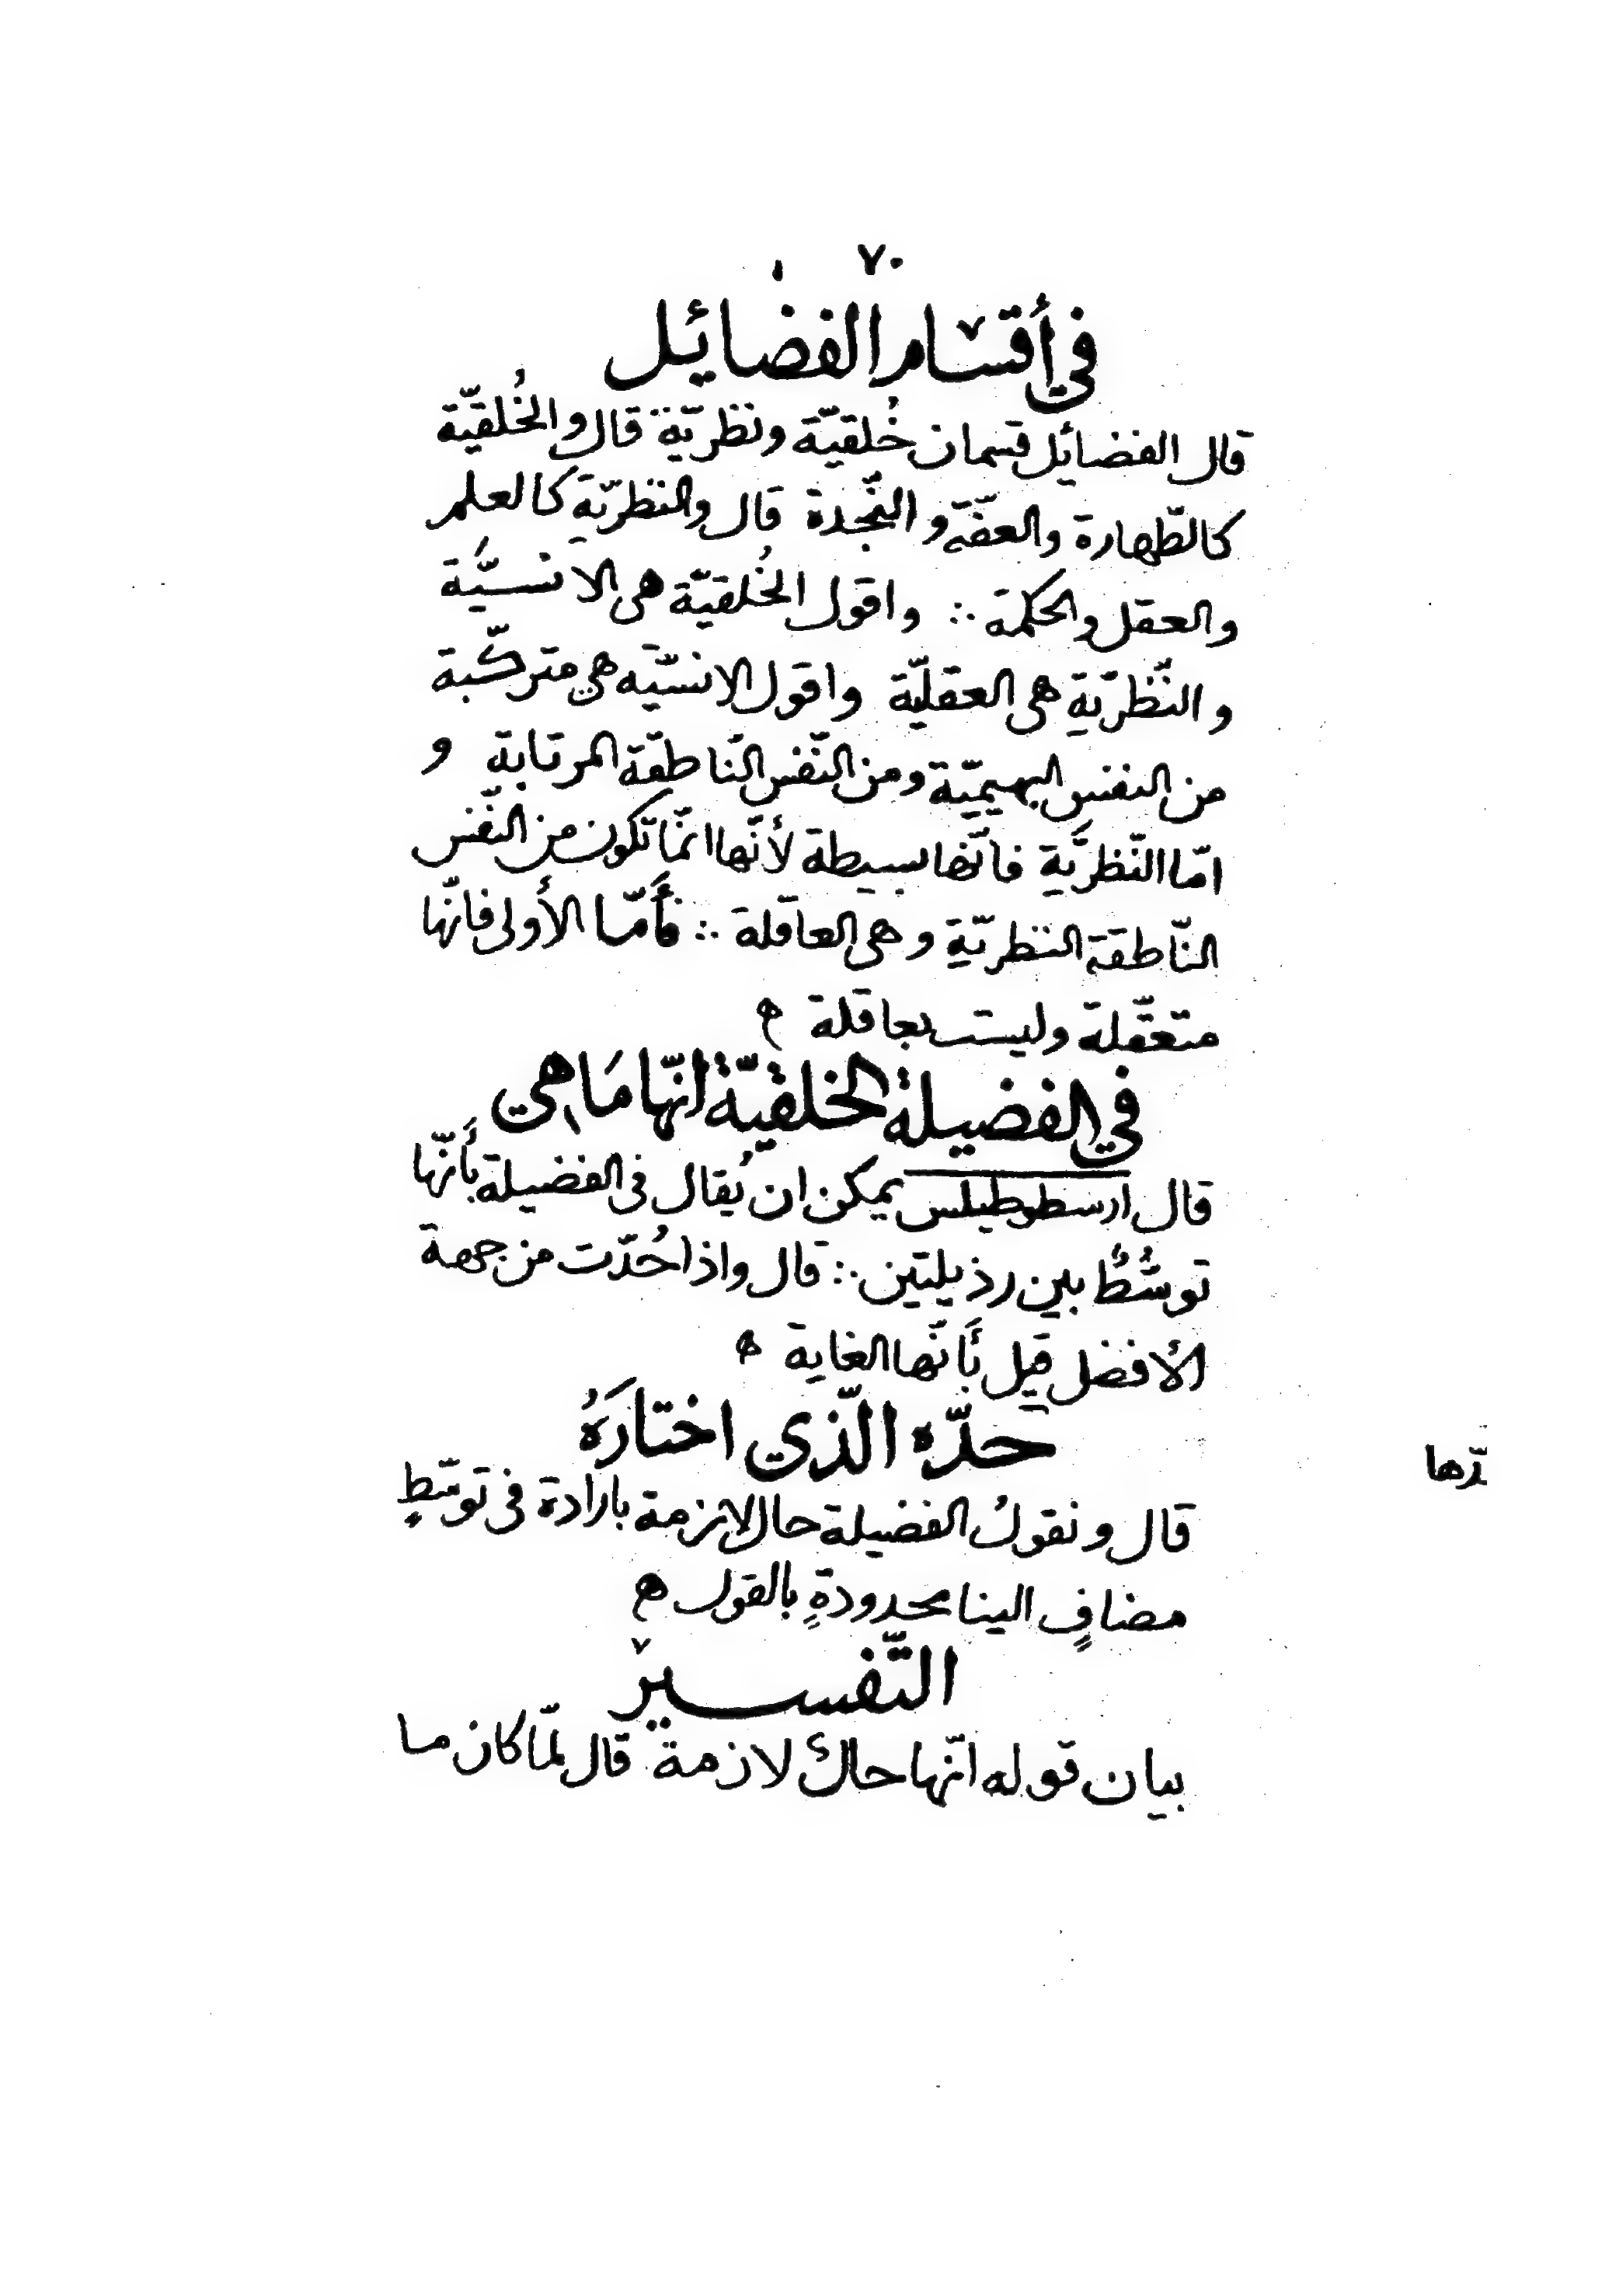 ٧٠
في أقسام الفضائل
قال الفضائل قسمان خُلقيّة ونظريّة قال والخُلقيّة
كالطّهارة والعفّة والنّجدة قال والنظريّة كالعلم
والعقل والحكمة ∴ واقول الخُلقيّة هى الانسيَّة
والنّظريّة هى العقليّة واقول الانسيّة هى متركّبة
من النفس البهيميّة ومن النّفس النّاطقة المرتابة و
امّا النّظريَّة فانّها بسيطة لأنّها انّما تكون من النّفس
النّاطقة النظريّة وهى العاقلة ∴ فأَمّا الأُولى فانّها
متعقّلة وليست بعاقلة ه
في الفضيلة الخلقيّة انّها مَا هي
قال ارسطوطيلس يمكن ان يُقال فى الفضيلة بأَنّها
توسُّطٌ بين رذيلتين ∴ قال واذا حُدّت من جهة
الأفضل قيل بأَنّها الغاية ه
حدّه الّذي اختارَهُ
قال ونقولُ الفضيلة حال لازمة بارادة فى توسّطٍ
مضافٍ الينا محدودةٍ بالقول ه
التّفسير
بيان قوله انّها حالٌ لازمة قال لمّا كان ما